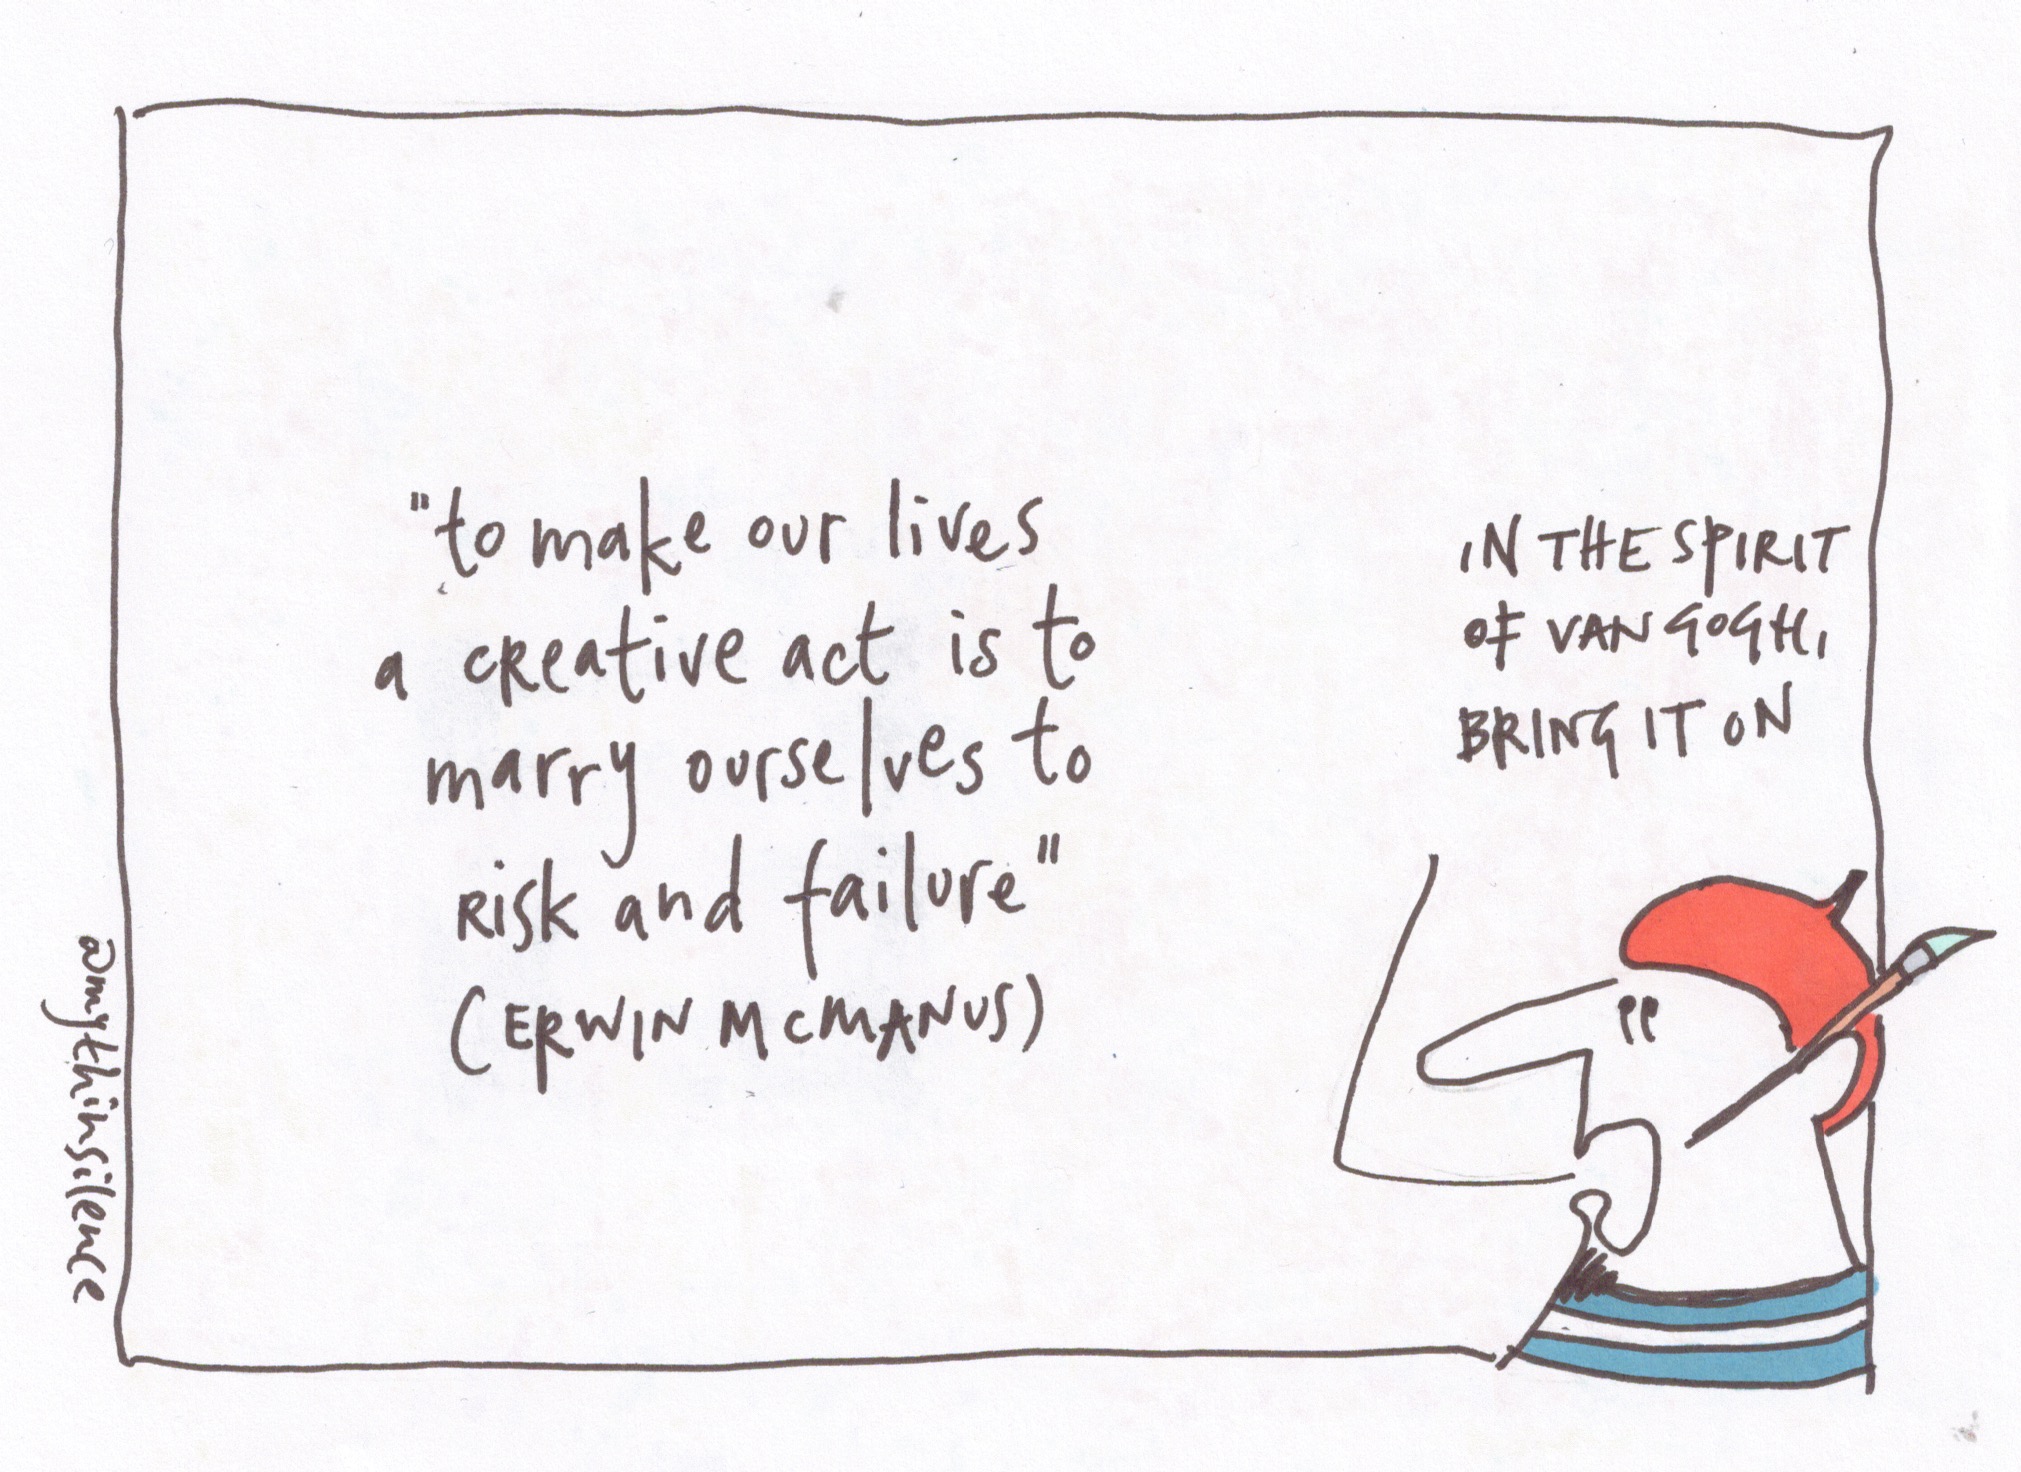 "to make our lives
a creative act is to
marry ourselves to
risk and failure"
(ERWIN McMANUS)
IN THE SPIRIT
OF VAN GOGH,
BRING IT ON
@mythinsilence